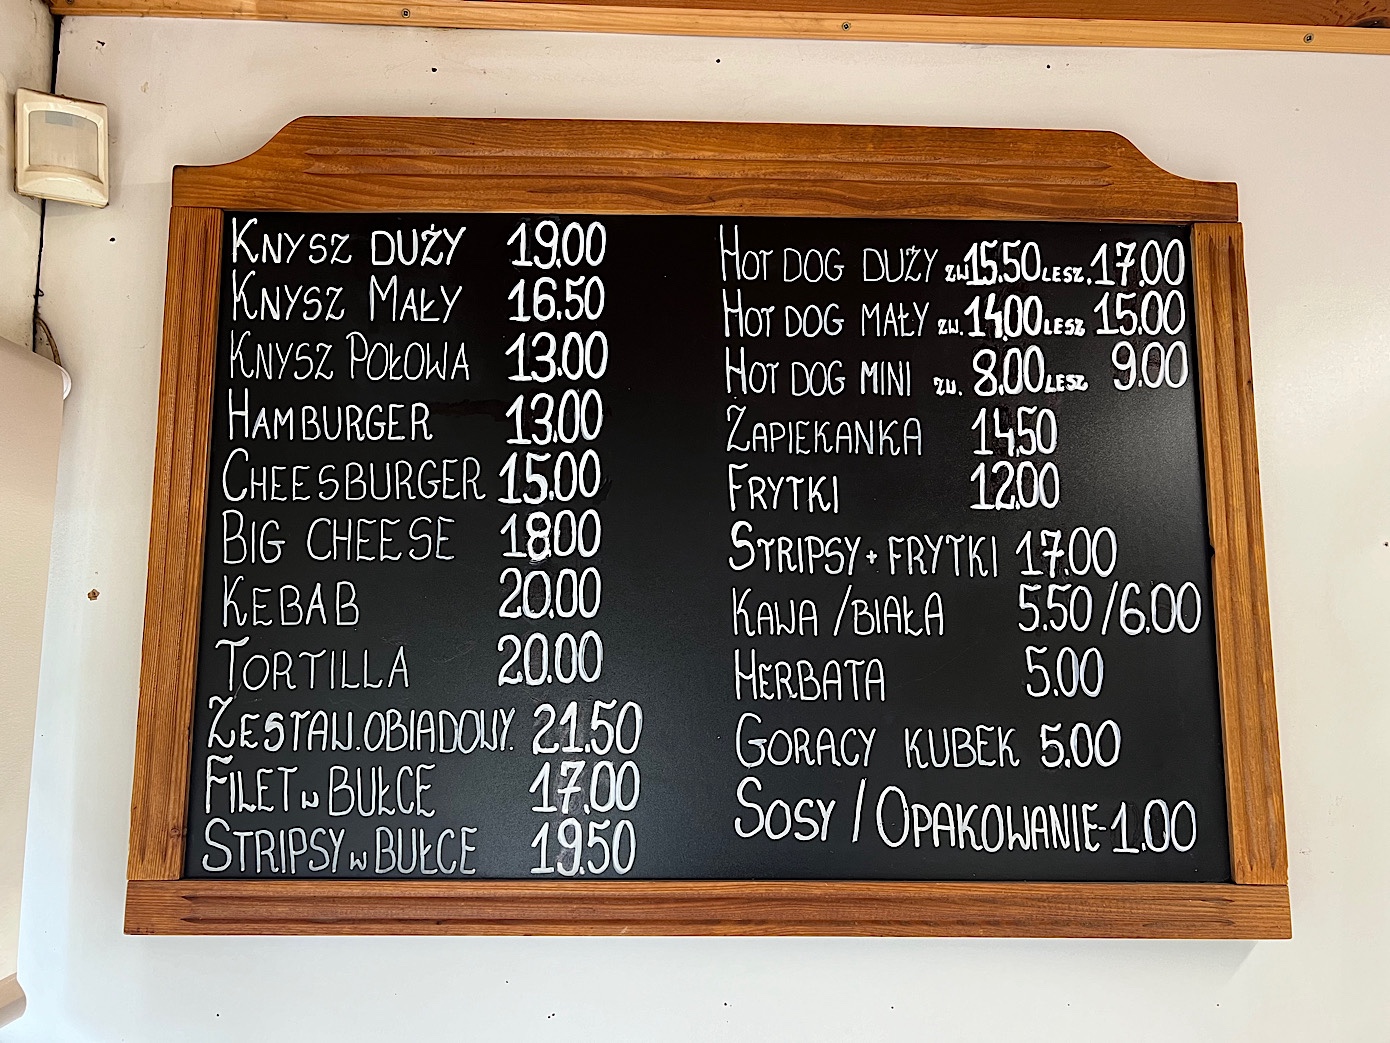 KNYSZ DUŻY 19.00
KNYSZ MAŁY 16.50
KNYSZ POŁOWA 13.00
HAMBURGER 13.00
CHEESBURGER 15.00
BIG CHEESE 18.00
KEBAB 20.00
TORTILLA 20.00
ZESTAW.OBIADOWY. 21.50
FILET W BUŁCE 17.00
STRIPSY W BUŁCE 19.50
HOT DOG DUŻY ZW.15.50 LESZ.17.00
HOT DOG MAŁY ZW.14.00 LESZ 15.00
HOT DOG MINI ZW. 8.00 LESZ 9.00
ZAPIEKANKA 14.50
FRYTKI 12.00
STRIPSY + FRYTKI 17.00
KAWA /BIAŁA 5.50 /6.00
HERBATA 5.00
GORACY KUBEK 5.00
SOSY / OPAKOWANIE-1.00